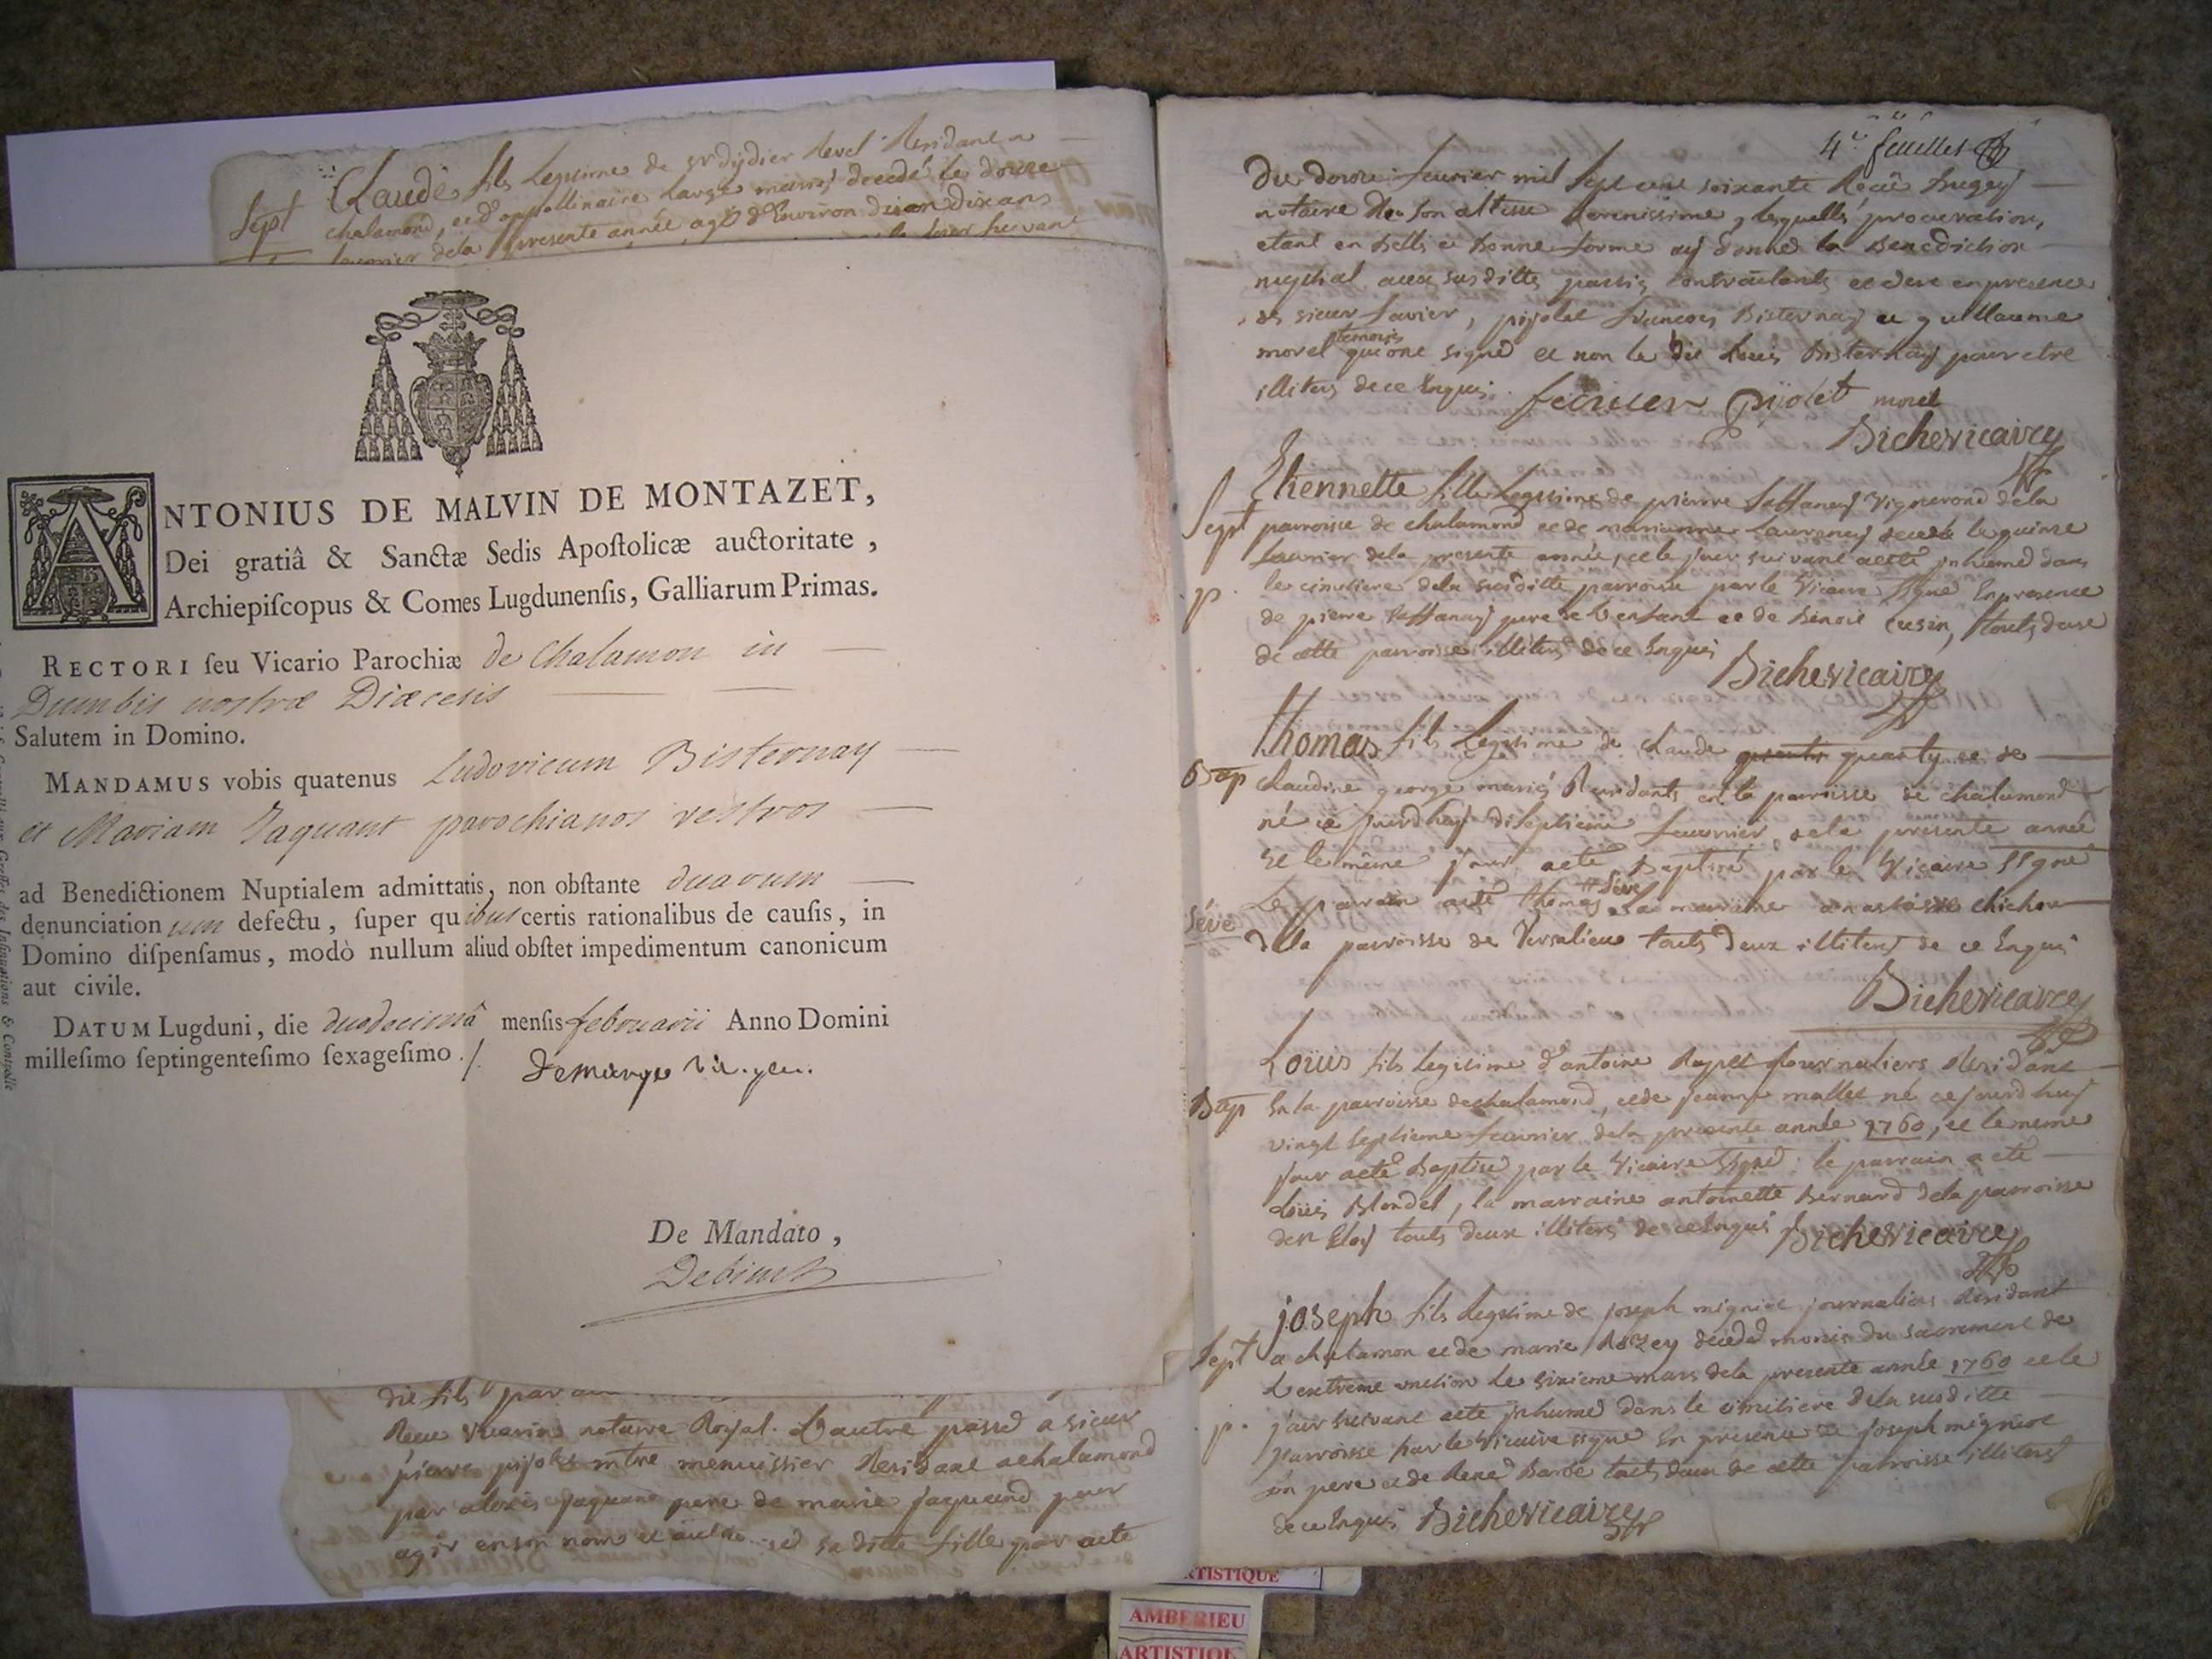 Sept
Claude fils legitime de st dydier Revel Residant a
chalamond, et d'appollinaire Large mariés decedé le douze
feuvrier de la presente année agé d'environ dix ans
le jour suivant
ANTONIUS DE MALVIN DE MONTAZET,
Dei gratiâ & Sanctæ Sedis Apoſtolicæ auctoritate,
Archiepiſcopus & Comes Lugdunenſis, Galliarum Primas.
RECTORI ſeu Vicario Parochiæ de Chalamon in
Dumbis nostræ Diœcesis
Salutem in Domino.
MANDAMUS vobis quatenus Ludovicum Bisternay
et Mariam Jaquant parochianos vestros
ad Benedictionem Nuptialem admittatis, non obſtante duarum
denunciationum defectu, ſuper quibus certis rationalibus de cauſis, in
Domino diſpenſamus, modò nullum aliud obſtet impedimentum canonicum
aut civile.
DATUM Lugduni, die duodecimâ menſis februarii Anno Domini
milleſimo ſeptingenteſimo ſexageſimo./.
vic. gen.
De Mandato,
dit fils par
Reçu notaire Royal. L'autre passed a sieur
pierre pijolet mtre menuissier Residant a chalamond
par alexis jaquand pere de marie jaquand pour
agir en son nom et sa ditte fille par acte
4e. feuillet
Du douze feuvrier mil sept cent soixante Reçuë Bugey
notaire de son altesse serenissime, lesquelles procuration,
etant en belle et bonne forme aÿ donné la Benediction
nuptial aux susdittes partis contractants et de ce en presence
de sieur favier, pijolet francois Bisternay et guillaume
morel temoins qui ont signé et non le dit Louis Bisternay pour etre
illiteré de ce Enquis. fauier pijolet morel
Bichevicairey
Sept
Etiennette fille legitime de pierre Vigneron de la
parroisse de chalamond et de marianne decedé le quinze
feuvrier de la presente année, et le jour suivant a eté jnhumé dans
p.
le cimitiere de la susditte parroisse par le Vicaire signé En presence
de pierre pere de l'enfant et de Benoit cusin, touts deux
de cette parroisse illiterés de ce Enquis
Bichevicairey
Bap
Thomas fils legitime de Claude quarty et de
Claudine george mariés Residants en la parroisse de chalamond
né ce jourdhuÿ diseptieme feuvrier de la presente année
et le même jour a eté Baptisé par le Vicaire signé
Séve
Le parrain a eté thomas Séve la marraine anastasie chichon
de la parroisse de Versalieu touts deux illiterés de ce Enquis
Bichevicairey
Bap
Loüis fils legitime d'antoine Rapet journaliers Residant
En la parroisse de chalamond, et de jeanne mallet né ce jourdhuÿ
vingt septieme feuvrier de la presente année 1760, et le meme
jour a eté Baptisé par le Vicaire signé le parrain a eté
Loüis Blondel, la marraine antoinette Bernard de la parroisse
de st Eloÿ touts deux illiterés de ce Enquis Bichevicairey
Sept
joseph fils legitime de joseph migniot journaliers Residant
a chalamon et de marie Rozey decedé munis du sacrement de
L'extreme onction le sixieme mars de la presente année 1760 et le
p.
jour suivant a eté jnhumé dans le cimitiere de la susditte
parroisse par le Vicaire signé En presence de joseph migniot
son pere et de René Barbe touts deux de cette parroisse illiterés
de ce Enquis Bichevicairey
RTISTIQUE
AMBERIEU
ARTISTIQU